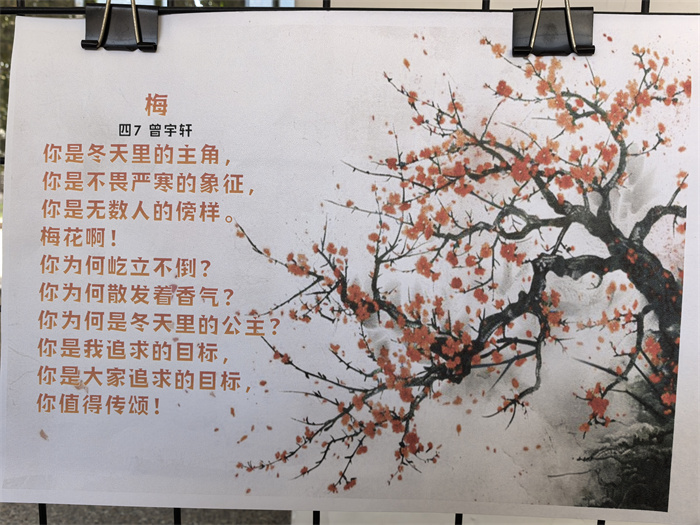 梅
四7 曾宇轩
你是冬天里的主角，
你是不畏严寒的象征，
你是无数人的傍样。
梅花啊！
你为何屹立不倒？
你为何散发着香气？
你为何是冬天里的公主？
你是我追求的目标，
你是大家追求的目标，
你值得传颂！